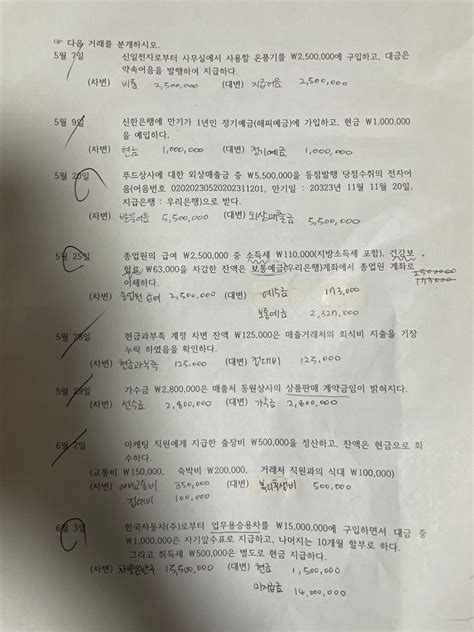 ☞ 다음 거래를 분개하시오.
5월 7일 신일전자로부터 사무실에서 사용할 온풍기를 ₩2,500,000에 구입하고, 대금은
약속어음을 발행하여 지급하다.
(차변) 비품 2,500,000 (대변) 지급어음 2,500,000
5월 9일 신한은행에 만기가 1년인 정기예금(해피예금)에 가입하고, 현금 ₩1,000,000
을 예입하다.
(차변) 현금 1,000,000 (대변) 정기예금 1,000,000
5월 20일 푸드상사에 대한 외상매출금 중 ₩5,500,000을 동점발행 당점수취의 전자어
음(어음번호 02020230520202311201, 만기일 : 20323년 11월 11월 20일,
지급은행 : 우리은행)으로 받다.
(차변) 받을어음 5,500,000 (대변) 외상매출금 5,500,000
5월 25일 종업원의 급여 ₩2,500,000 중 소득세 ₩110,000(지방소득세 포함), 건강보
험료 ₩63,000을 차감한 잔액은 보통예금(우리은행)계좌에서 종업원 계좌로
이체하다.
2500000
173000
(차변) 종업원 급여 2,500,000 (대변) 예수금 173,000
보통예금 2,327,000
5월 28일 현금과부족 계정 차변 잔액 ₩125,000은 매출거래처의 회식비 지출을 기장
누락 하였음을 확인하다.
(차변) 현금과부족 125,000 (대변) 접대비 125,000
5월 29일 가수금 ₩2,800,000은 매출처 동원상사의 상품판매 계약금임이 밝혀지다.
(차변) 선수금 2,800,000 (대변) 가수금 2,800,000
6월 2일 마케팅 직원에게 지급한 출장비 ₩500,000을 정산하고, 잔액은 현금으로 회
수하다.
(교통비 ₩150,000, 숙박비 ₩200,000, 거래처 직원과의 식대 ₩100,000)
(차변) 여비교통비 350,000 (대변) 복리후생비 500,000
접대비 100,000
6월 3일 한국자동차(주)로부터 업무용승용차를 ₩15,000,000에 구입하면서 대금 중
₩1,000,000은 자기앞수표로 지급하고, 나머지는 10개월 할부로 하다.
그리고 취득세 ₩500,000은 별도로 현금 지급하다.
(차변) 차량운반구 15,500,000 (대변) 현금 1,500,000
미지급금 14,000,000